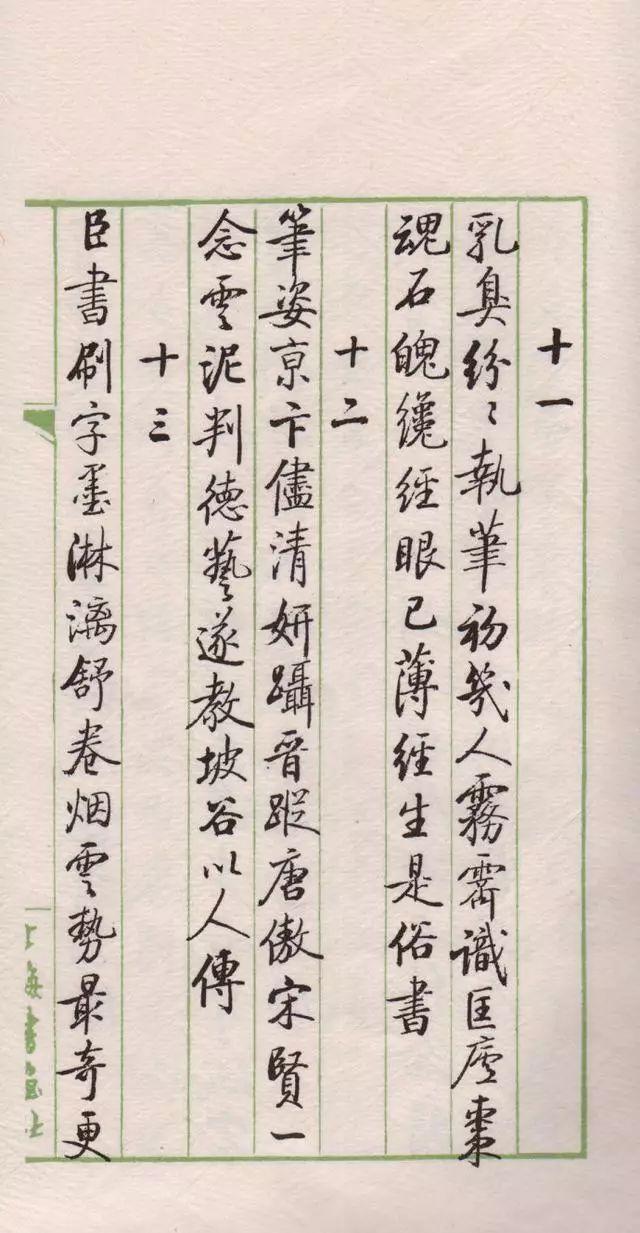 十一
乳臭紛〻執筆初幾人霧霽識匡廬棗
魂石魄纔經眼已薄經生是俗書
十二
筆姿京卞儘清妍躡晉蹤唐傲宋賢一
念雲泥判德藝遂教坡谷以人傳
十三
臣書刷字墨淋漓舒卷烟雲勢最奇更